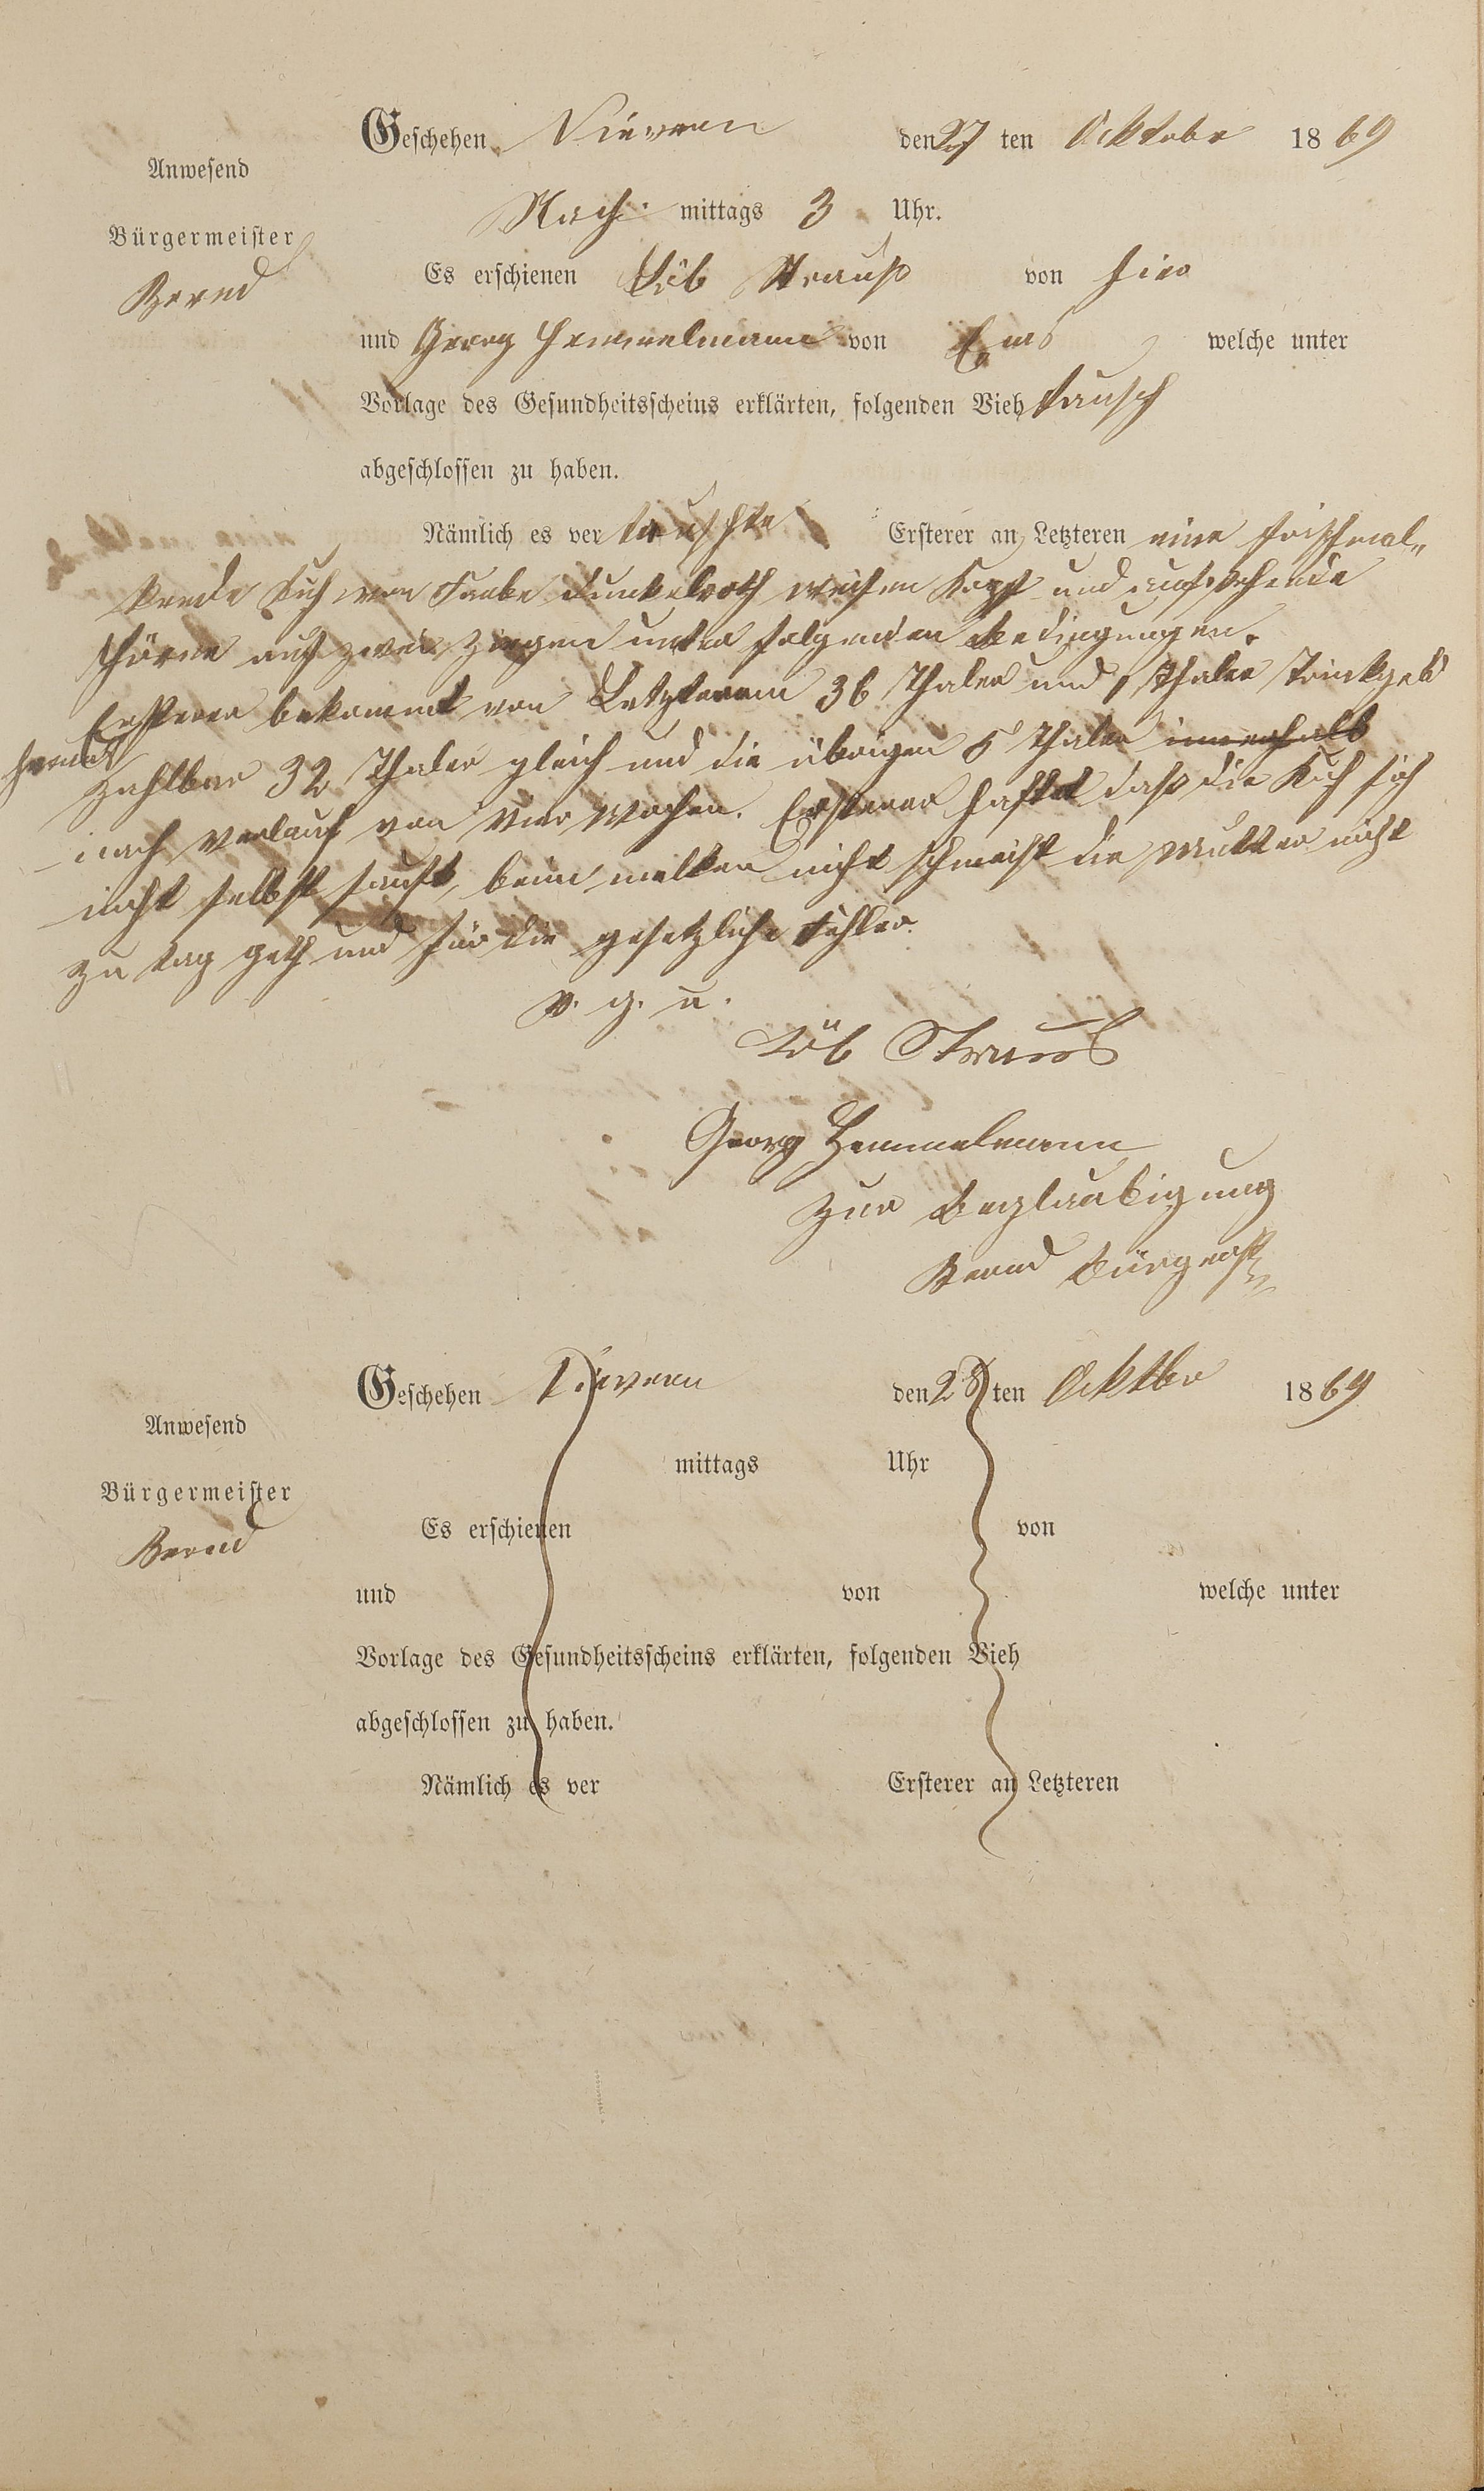 Geschehen Nievern den 27 ten Ocktobr 1869
Anwesend
Nach mittags 3 Uhr.
Bürgermeister
Bernd
Es erschienen Löb Strauß von hier
und Georg Hemmelmann von Ems welche unter
Vorlage des Gesundheitsscheins erklärten, folgenden Vieh tausch
abgeschlossen zu haben.
Nämlich es ver tauschte Ersterer an Letzteren eine frischmel„
kende Kuh von Farbe dunkelroth weisen Kopf und aufstehende
Hörner auf zwei Ziegen unter folgenden Bedingungen.
Ersterer bekommt von Letzterem 36 Thaler und 1 Thaler Trinkgeld
heraus
zahlbar 32 Thaler gleich und die übrigen 5 Thaler innerhalb
nach verlauf von Vier Wochen. Ersterer haftet daß die Kuh sich
nicht selbst sauft, beim melken nicht schmeist die Mutter nicht
zu tag geth und für die gesetzliche Fehler.
v. g. u.
Löb Strauss
Georg Hemmelmann
Zur Beglaubigung
Bernd Bürgermstr
Geschehen Nievern den 28 ten Ocktbr 1869
Anwesend
mittags Uhr
Bürgermeister
Bernd
Es erschienen von
und von welche unter
Vorlage des Gesundheitsscheins erklärten, folgenden Vieh
abgeschlossen zu haben.
Nämlich es ver Ersterer an Letzteren